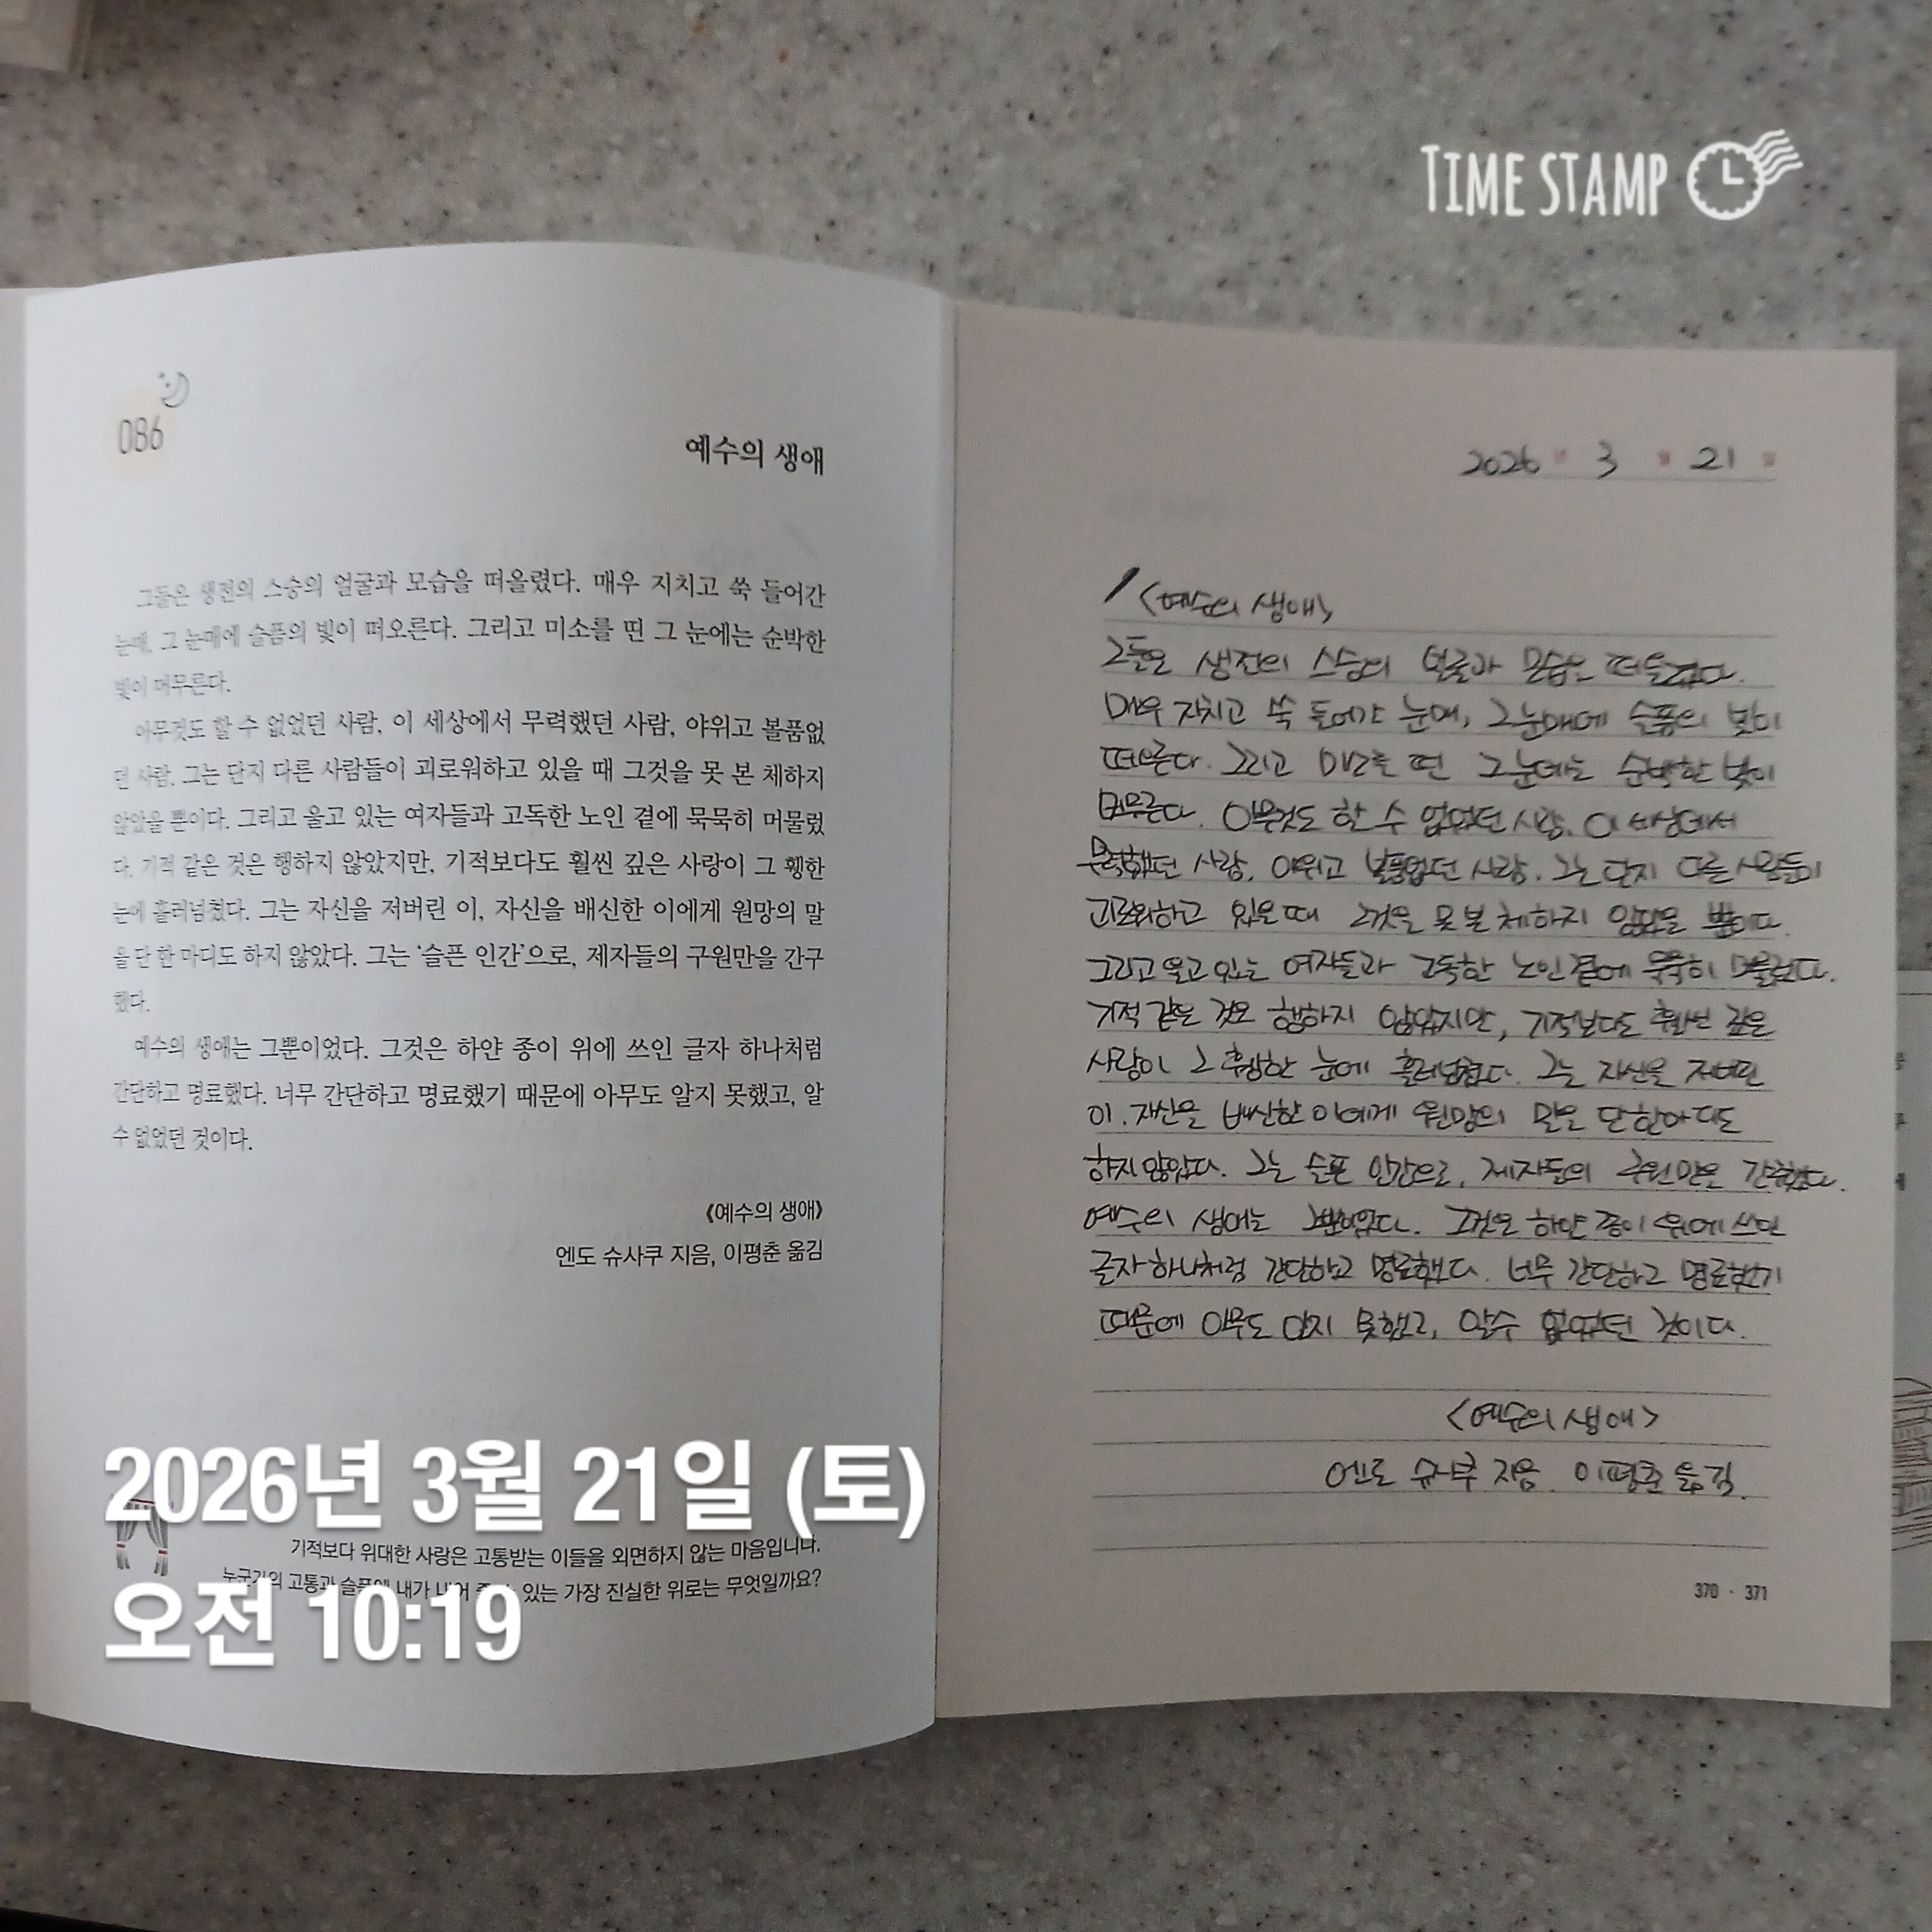 TIME STAMP
086
예수의 생애
그들은 생전의 스승의 얼굴과 모습을 떠올렸다. 매우 지치고 쑥 들어간
눈매, 그 눈매에 슬픔의 빛이 떠오른다. 그리고 미소를 띤 그 눈에는 순박한
빛이 머무른다.
아무것도 할 수 없었던 사람, 이 세상에서 무력했던 사람, 야위고 볼품없
던 사람. 그는 단지 다른 사람들이 괴로워하고 있을 때 그것을 못 본 체하지
않았을 뿐이다. 그리고 울고 있는 여자들과 고독한 노인 곁에 묵묵히 머물렀
다. 기적 같은 것은 행하지 않았지만, 기적보다도 훨씬 깊은 사랑이 그 휑한
눈에 흘러넘쳤다. 그는 자신을 저버린 이, 자신을 배신한 이에게 원망의 말
을 단 한 마디도 하지 않았다. 그는 ‘슬픈 인간’으로, 제자들의 구원만을 간구
했다.
예수의 생애는 그뿐이었다. 그것은 하얀 종이 위에 쓰인 글자 하나처럼
간단하고 명료했다. 너무 간단하고 명료했기 때문에 아무도 알지 못했고, 알
수 없었던 것이다.
《예수의 생애》
엔도 슈사쿠 지음, 이평춘 옮김
기적보다 위대한 사랑은 고통받는 이들을 외면하지 않는 마음입니다.
고통과 내가 있는 가장 진실한 위로는 무엇일까요?
2026년 3월 21일 (토)
오전 10:19
2026 3 21
<예수의 생애>
그들은 생전의 스승의 얼굴과 모습은 떠올렸다.
매우 지치고 쑥 들어간 눈매, 그 눈매에 슬픔의 빛이
떠오른다. 그리고 미소를 띤 그 눈에는 순박한 빛이
머무른다. 아무것도 할 수 없었던 사람, 이 세상에서
무력했던 사람, 야위고 볼품없던 사람. 그는 단지 다른 사람들이
괴로워하고 있을 때 그것을 못 본 체하지 않았을 뿐이다.
그리고 울고 있는 여자들과 고독한 노인 곁에 묵묵히 머물렀다.
기적 같은 것은 행하지 않았지만, 기적보다도 훨씬 깊은
사랑이 그 휑한 눈에 흘러넘쳤다. 그는 자신을 저버린
이. 자신을 배신한 이에게 원망의 말을 단 한마디도
하지 않았다. 그는 슬픈 인간으로, 제자들의 구원만을 간구했다.
예수의 생애는 그뿐이었다. 그것은 하얀 종이 위에 쓰인
글자 하나처럼 간단하고 명료했다. 너무 간단하고 명료했기
때문에 아무도 알지 못했고, 알수 없었던 것이다.
<예수의 생애>
엔도 슈사쿠 지음. 이평춘 옮김.
370 · 371